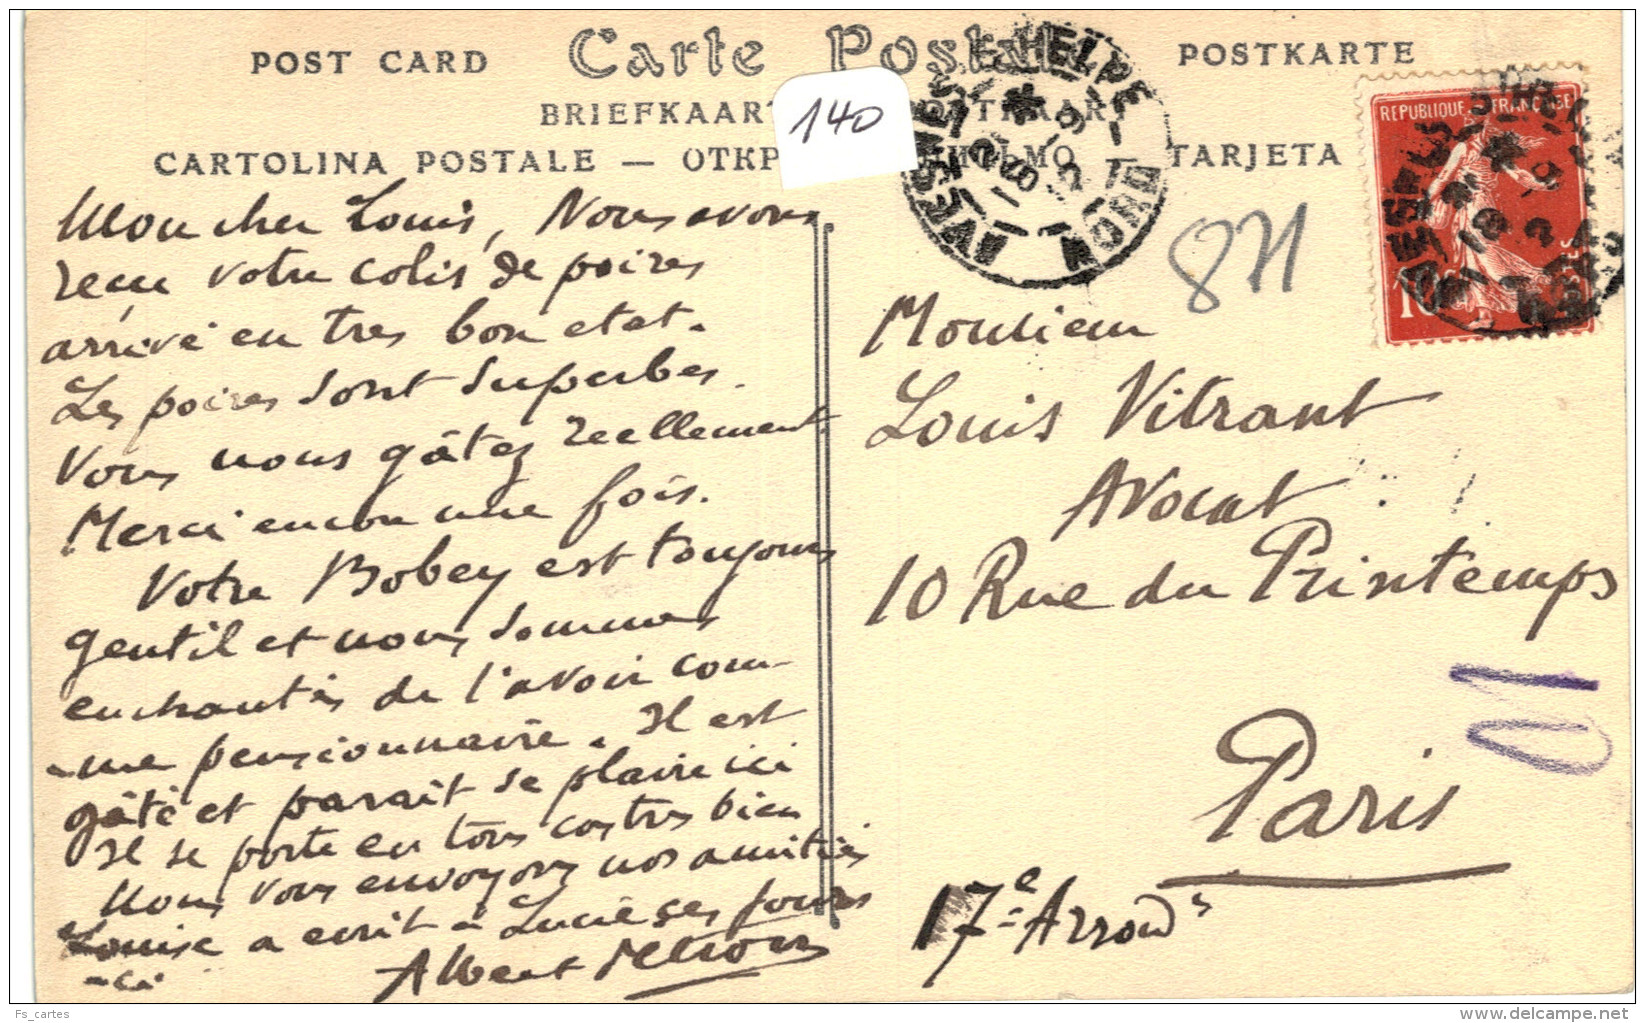 POST CARD Carte Postale POSTKARTE
BRIEFKAAR
CARTOLINA POSTALE — ОТКР TARJETA
140
AVESNES-S-HELPE
NORD
REPUBLIQUE FRANÇAISE
10
871
Mon cher Louis, Nous avons
recu votre colis de poires
arrivé en tres bon etat.
Les poires sont superbes.
Vous nous gâtez reellement
Merci encore une fois.
Votre Bobey est toujours
gentil et nous sommes
enchantés de l'avoir com-
-me pensionnaire. Il est
gâté et parait se plaire ici
Il se porte en tous cas très bien
Nous vous envoyons nos amitiés
Louise a ecrit à Lucie ces jours
-ci
Albert
Monsieur
Louis Vitrant
Avocat
10 Rue du Printemps
Paris
17e Arrond
Fs_cartes
www.delcampe.net